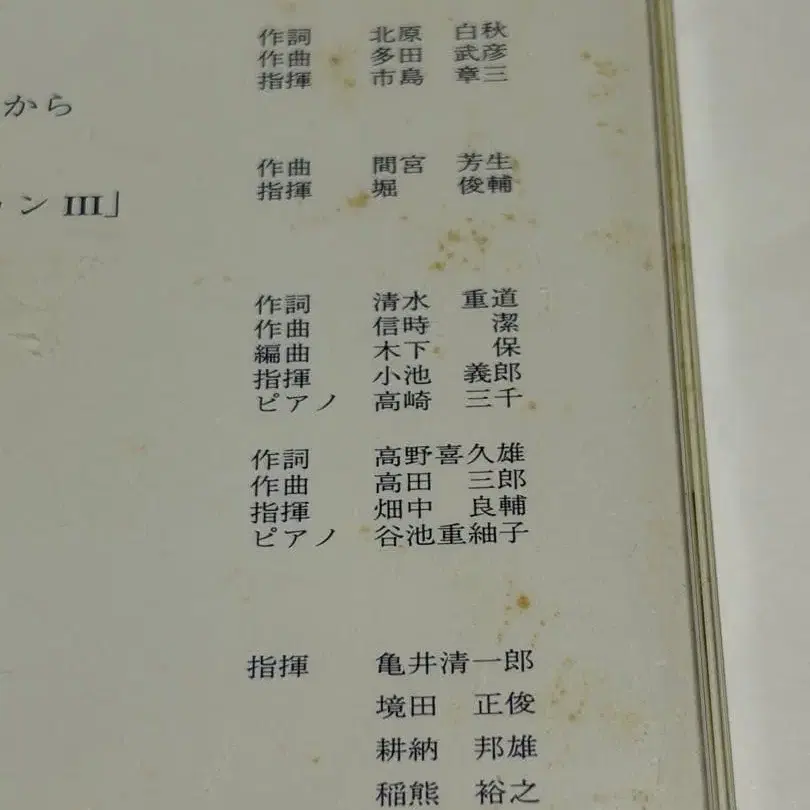 作詞 北原 白秋
作曲 多田 武彦
指揮 市島 章三
から
作曲 間宮 芳生
指揮 堀 俊輔
ン III」
作詞 清水 重道
作曲 信時 潔
編曲 木下 保
指揮 小池 義郎
ピアノ 高崎 三千
作詞 高野喜久雄
作曲 高田 三郎
指揮 畑中 良輔
ピアノ 谷池重紬子
指揮 亀井清一郎
境田 正俊
耕納 邦雄
稲熊 裕之